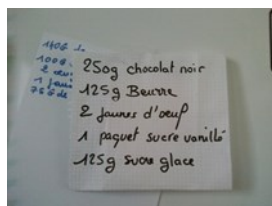 140G
100G
2
1
75G de
250g chocolat noir
125g Beurre
2 jaunes d'oeuf
1 paquet sucre vanillé
125g sucre glace